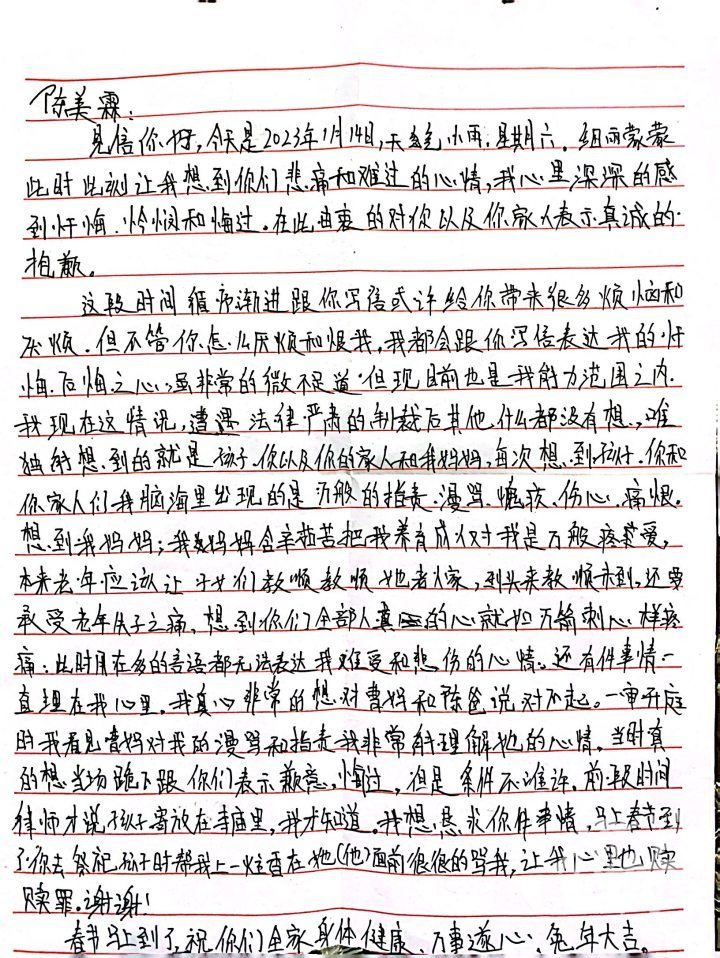 陈美霖:
见信你好,今天是2023年1月14日,天气小雨.星期六.细雨蒙蒙
此时此刻让我想到你们悲痛和难过的心情,我心里深深的感
到忏悔.怜悯和悔过.在此由衷的对你以及你家人表示真诚的
抱歉。
这段时间循序渐进跟你写信或许给你带来很多烦恼和
厌烦.但不管你怎么厌烦和恨我,我都会跟你写信表达我的忏
悔.后悔之心,虽非常的微不足道.但现目前也是我能力范围之内.
我现在这情况,遭遇法律严肃的制裁后其他什么都没有想,唯
独能想到的就是孩子.你以及你的家人和我妈妈,每次想到孩子.你和
你家人们我脑海里出现的是万般的指责.漫骂.愧疚.伤心.痛恨.
想到我妈妈;我妈妈含辛茹苦把我养育成人对我是万般疼爱,
本来老年应该让子女们教顺教顺她老人家,到头来教顺未到,还要
承受老年失子之痛.想到你们全部人真的心就如万箭刺心样疼
痛;此时用在多的言语都无法表达我难受和悲伤的心情。还有件事情一
直埋在我心里.我真心非常的想对曹妈和陈爸说对不起。一审开庭
时我看见曹妈对我的漫骂和指责我非常能理解她的心情.当时真
的想当场跪下跟你们表示歉意,悔过,但是条件不准许.前段时间
律师才说孩子寄放在寺庙里,我才知道.我想恳求你件事情,马上春节到
了你去祭祀孩子时帮我上一炷香在她(他)面前很很的骂我,让我心里也赎
赎罪.谢谢!
春节马上到了,祝你们全家身体健康、万事遂心、兔年大吉。